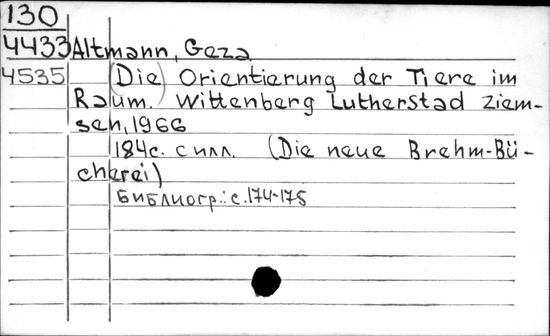 130
4433 Altmann, Geza
4535 (Die) Orientierung der Tiere im
Raum. Wittenberg Lutherstad Ziem-
sen, 1966
184с. с илл. (Die neue Brehm-Bü-
cherei)
Библиогр.: с. 174-175